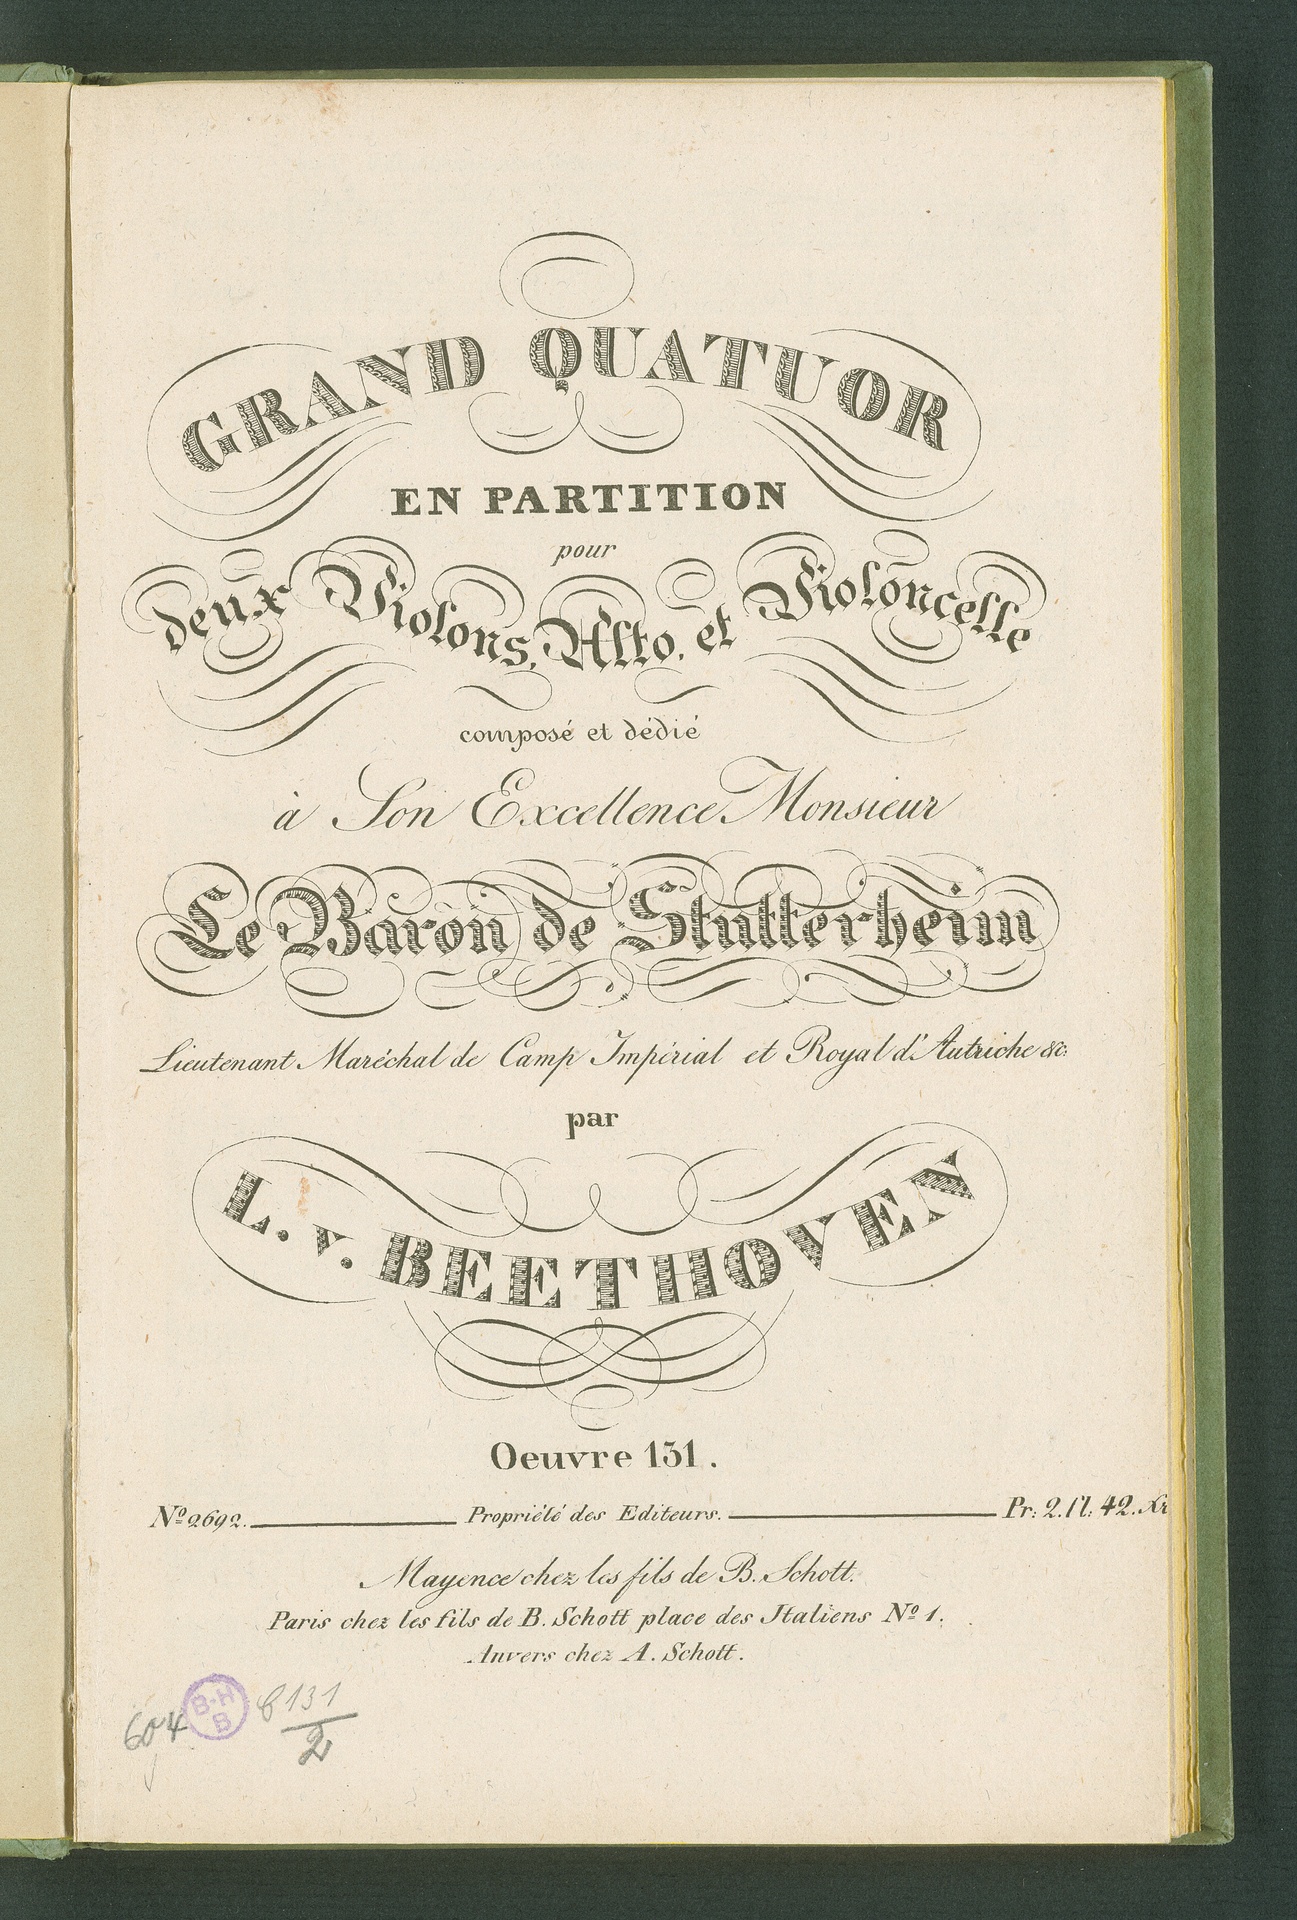 GRAND QUATUOR
EN PARTITION
pour
deux Violons, Alto, et Violoncelle
composé et dédié
à Son Excellence Monsieur
Le Baron de Stutterheim
Lieutenant Maréchal de Camp Impérial et Royal d'Autriche &c:
par
L. v. BEETHOVEN
Oeuvre 131.
Nº 2692. Propriété des Editeurs. Pr: 2. Fl: 42. Xr
Mayence chez les fils de B. Schott.
Paris chez les fils de B. Schott place des Italiens Nº 1.
Anvers chez A. Schott.
B-H
B
C 131
2